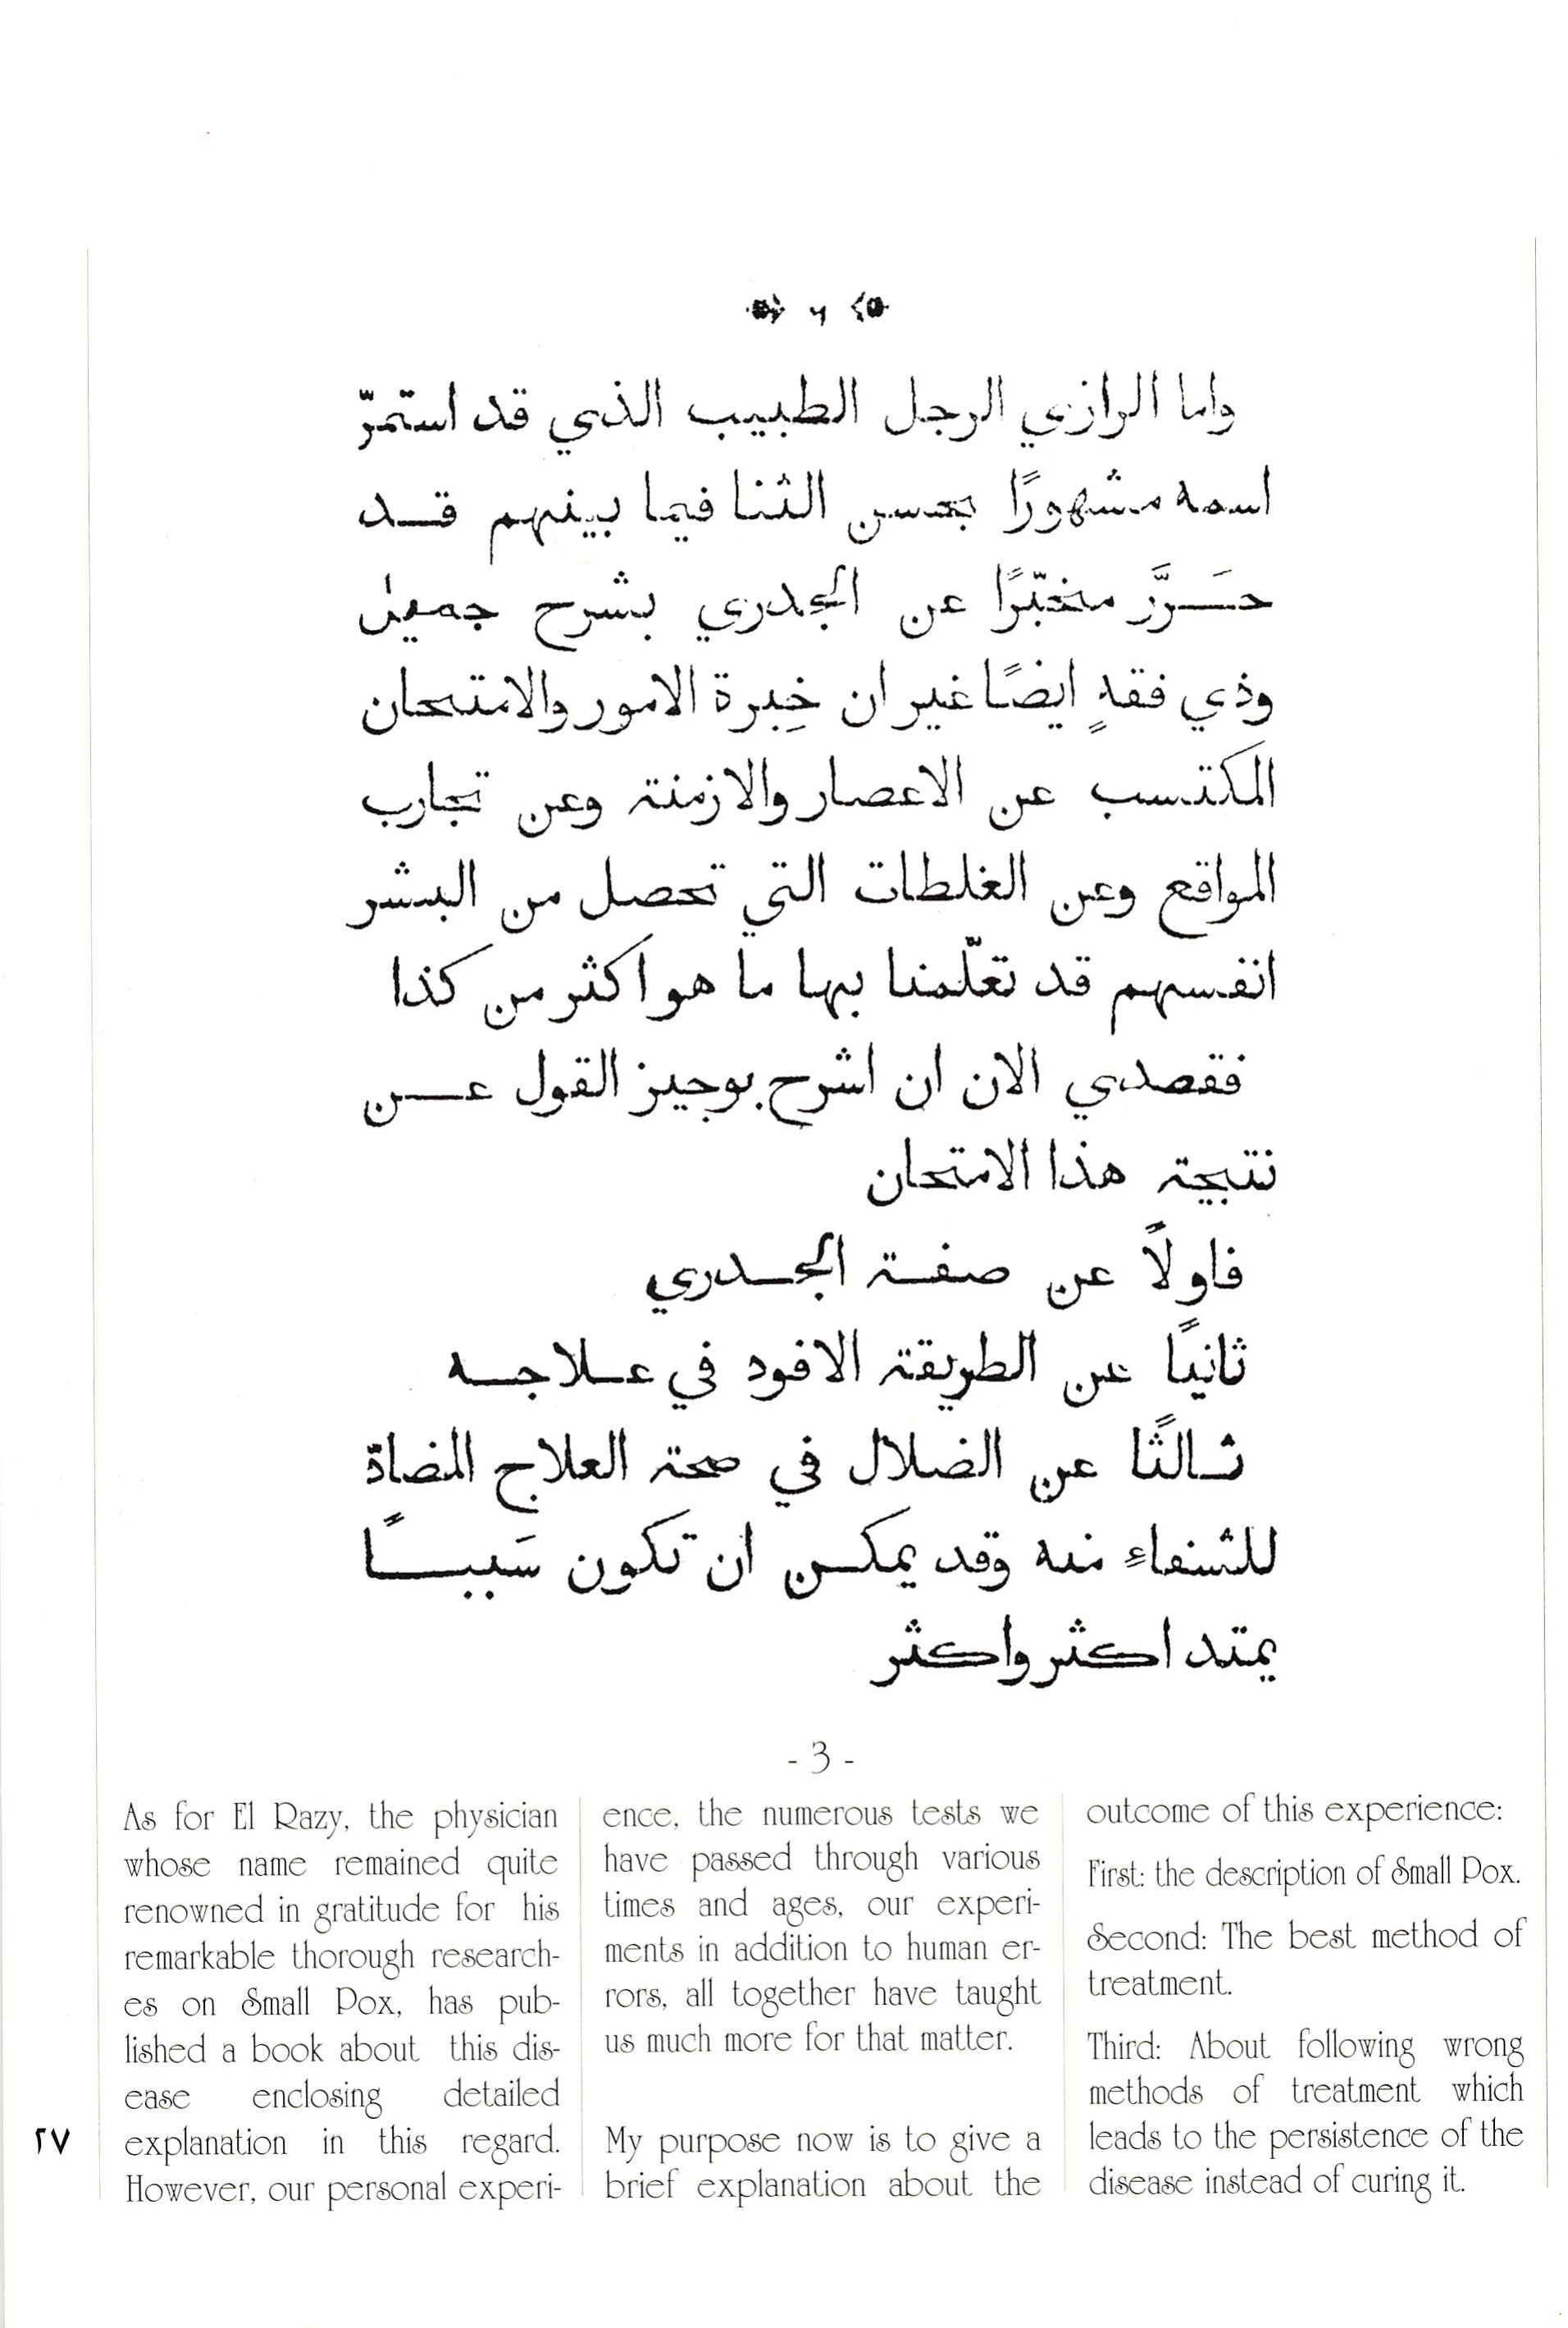 ٦
واما الرازي الرجل الطبيب الذي قد استمرّ
اسمه مشهورًا بحسن الثنا فيما بينهم قد
حَرَّر مخبّرًا عن الجدري بشرح جميل
وذي فقهٍ ايضًا غير ان خِبرة الامور والامتحان
المكتسب عن الاعصار والازمنة وعن تجارب
المواقع وعن الغلطات التي تحصل من البشر
انفسهم قد تعلّمنا بها ما هو اكثر من كذا
فقصدي الان ان اشرح بوجيز القول عن
نتيجة هذا الامتحان
فاولاً عن صفة الجدري
ثانيًا عن الطريقة الافود في علاجه
ثالثًا عن الضلال في صحة العلاج المضادّ
للشفاءِ منه وقد يمكن ان تكون سَببًا
يمتد اكثر واكثر
- 3 -
As for El Razy, the physician
whose name remained quite
renowned in gratitude for his
remarkable thorough research-
es on Small Pox, has pub-
lished a book about this dis-
ease enclosing detailed
explanation in this regard.
However, our personal experi-
ence, the numerous tests we
have passed through various
times and ages, our experi-
ments in addition to human er-
rors, all together have taught
us much more for that matter.
My purpose now is to give a
brief explanation about the
outcome of this experience:
First: the description of Small Pox.
Second: The best method of
treatment.
Third: About following wrong
methods of treatment which
leads to the persistence of the
disease instead of curing it.
٢٧